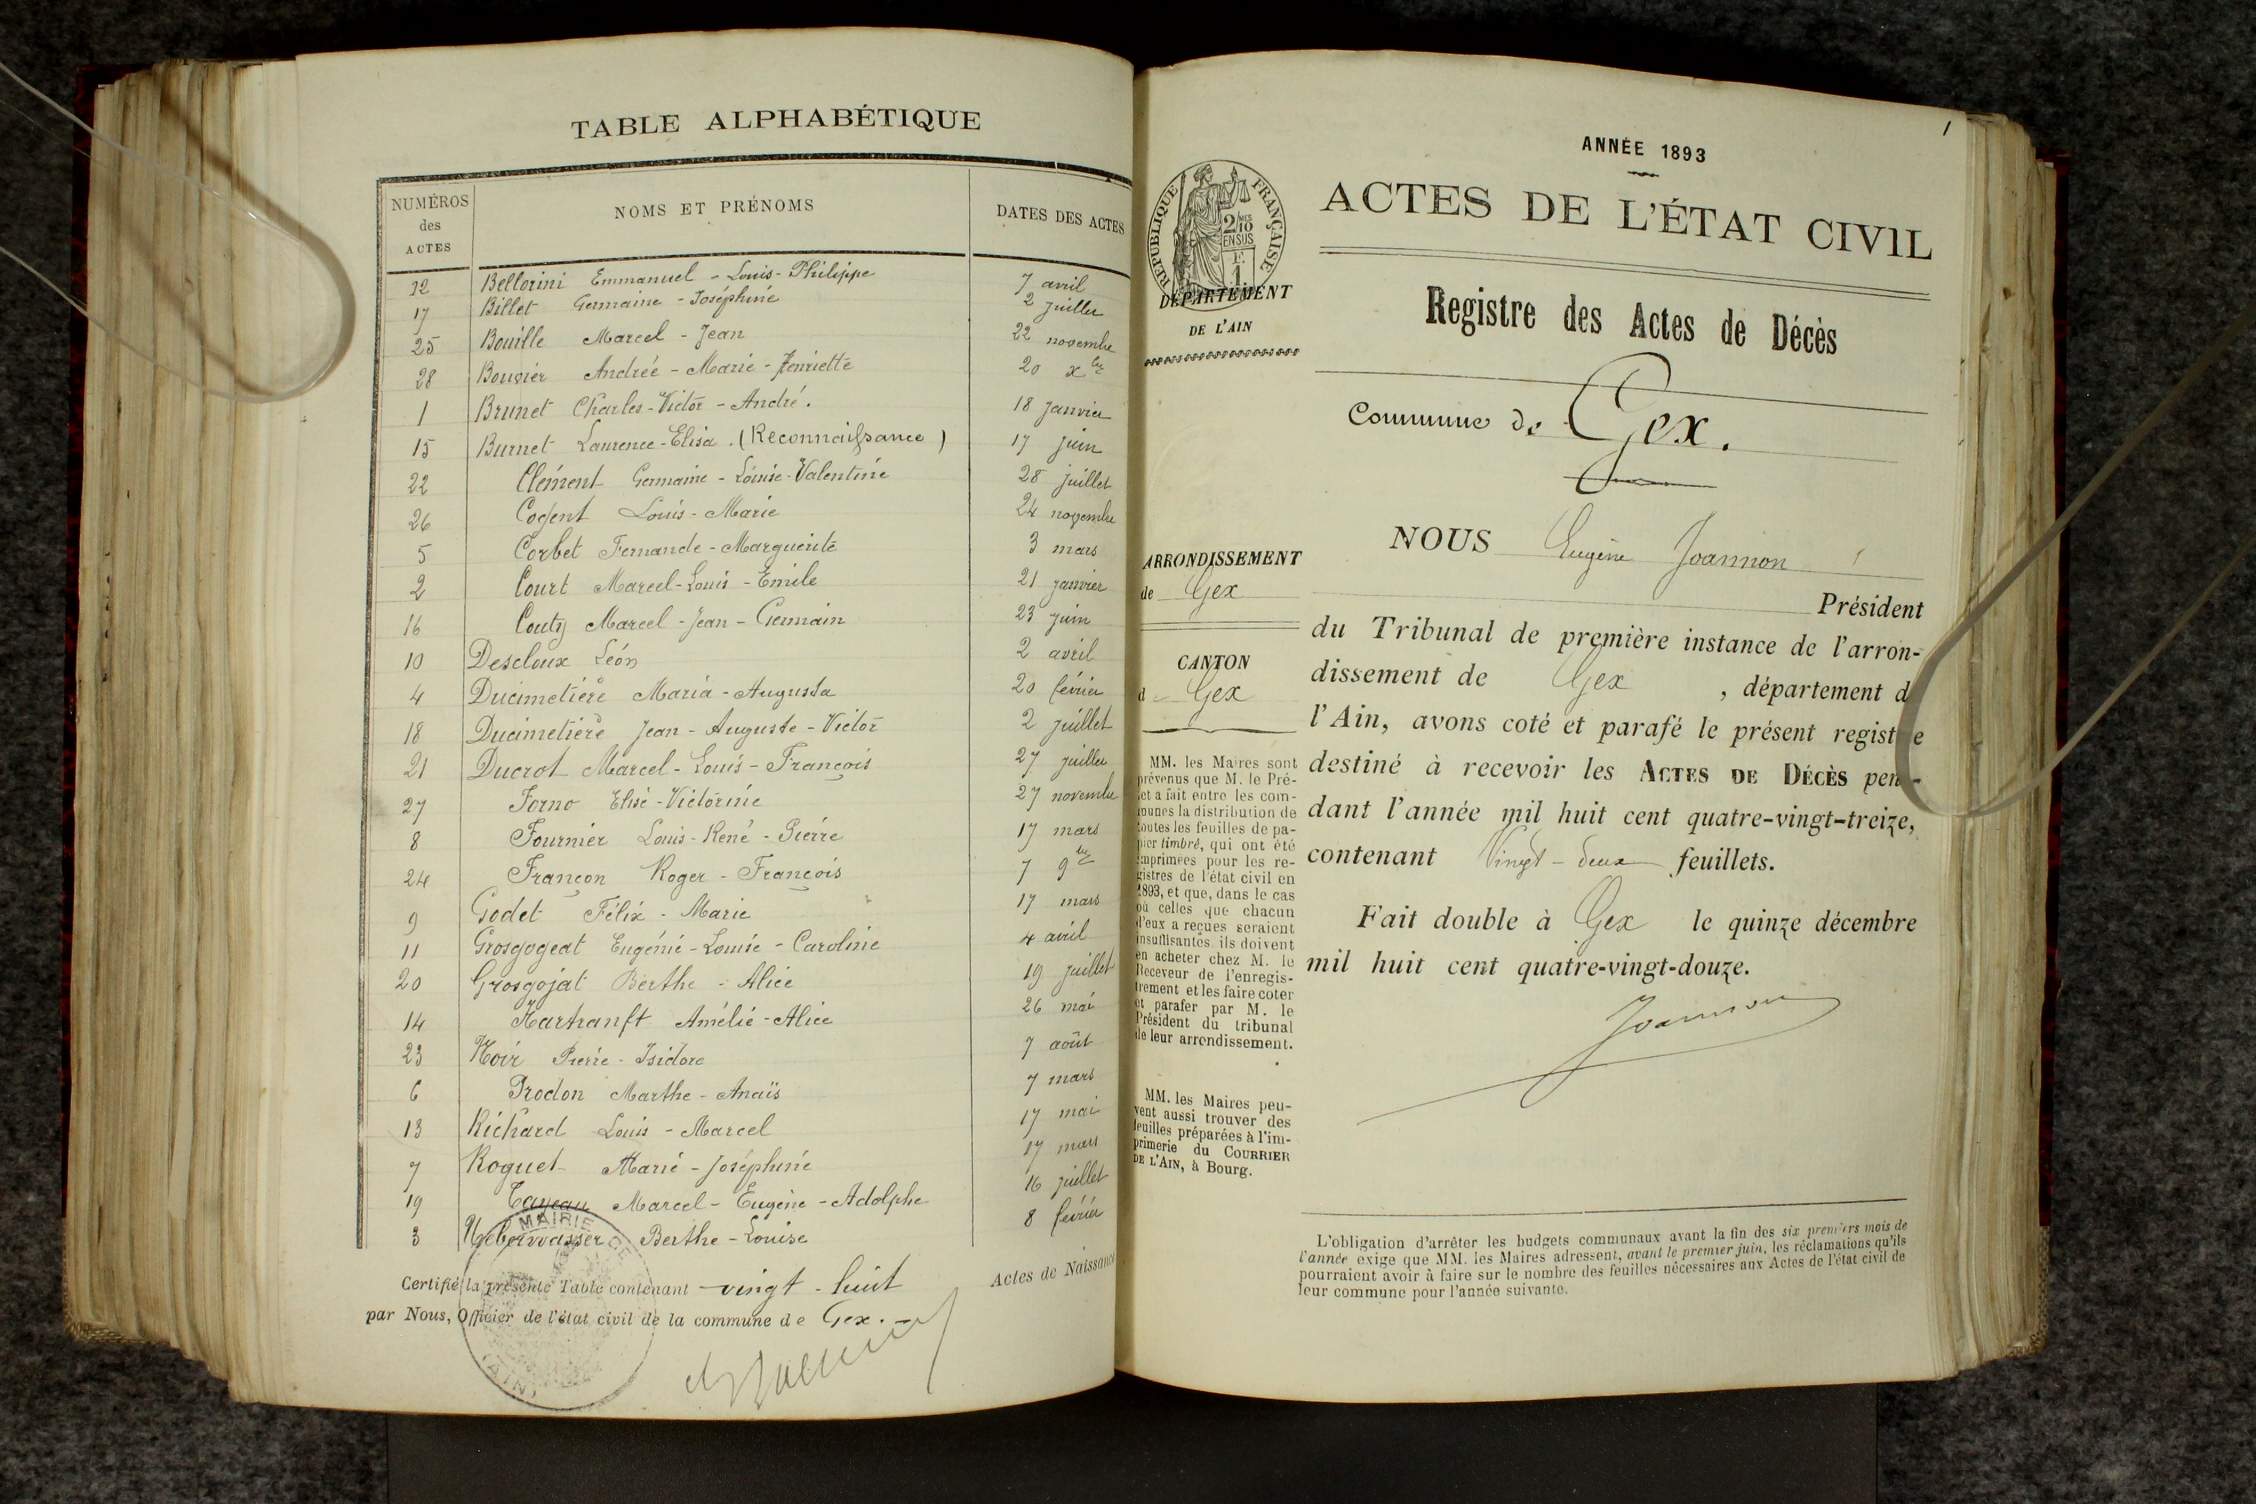 TABLE ALPHABÉTIQUE
NUMÉROS des ACTES
NOMS ET PRÉNOMS
DATES DES ACTES
12 Bellorini Emmanuel - Louis - Philippe 7 avril
17 Billet Germaine - Joséphine 2 juillet
25 Bouille Marcel - Jean 22 novembre
28 Bouvier Andrée - Marie - Henriette 20 xbre
1 Brunet Charles - Victor - André. 18 janvier
15 Burnet Laurence - Elisa. (Reconnaissance) 17 juin
22 Clément Germaine - Louise - Valentine 28 juillet
26 Cogent Louis - Marie 24 novembre
5 Corbet Fernande - Marguerite 3 mars
2 Court Marcel - Louis - Emile 21 janvier
16 Couty Marcel - Jean - Germain 23 juin
10 Descloux Léon 2 avril
4 Ducimetière Maria - Augusta 20 février
18 Ducimetière Jean - Auguste - Victor 2 juillet
21 Ducrot Marcel - Louis - François 27 juillet
27 Forno Elise - Victorine 27 novembre
8 Fournier Louis - René - Pierre 17 mars
24 Françon Roger - François 7 9bre
9 Godet Félix - Marie 17 mars
11 Grosgogeat Eugénie - Louise - Caroline 4 avril
20 Grosgojat Berthe - Alice 19 juillet
14 Hartranft Amélie - Alice 26 mai
23 Noir Pierre - Isidore 7 août
6 Prodon Marthe - Anaïs 7 mars
13 Richard Louis - Marcel 17 mai
7 Roguet Marie - Joséphine 17 mars
19 Marcel - Eugène - Adolphe 16 juillet
3 Berthe - Louise 8 février
MAIRIE DE
(AIN)
Certifié la présente Table contenant vingt - huit Actes de Naissance
par Nous, Officier de l'état civil de la commune de Gex. -
1
ANNÉE 1893
ACTES DE L'ÉTAT CIVIL
RÉPUBLIQUE FRANÇAISE
2/10 EN SUS
DÉPARTEMENT
DE L'AIN
Registre des Actes de Décès
Commune de Gex.
ARRONDISSEMENT
de Gex
CANTON
d Gex
MM. les Maires sont
prévenus que M. le Pré-
fet a fait entre les com-
munes la distribution de
toutes les feuilles de pa-
pier timbré, qui ont été
imprimées pour les re-
gistres de l'état civil en
1893, et que, dans le cas
où celles que chacun
d'eux a reçues seraient
insuffisantes ils doivent
en acheter chez M. le
Receveur de l'enregis-
trement et les faire coter
et parafer par M. le
Président du tribunal
de leur arrondissement.
MM. les Maires peu-
vent aussi trouver des
feuilles préparées à l'im-
primerie du COURRIER
DE L'AIN, à Bourg.
NOUS Eugène Joannon
Président
du Tribunal de première instance de l'arron-
dissement de Gex, département d
l'Ain, avons coté et parafé le présent registre
destiné à recevoir les ACTES DE DÉCÈS pen-
dant l'année mil huit cent quatre-vingt-treize,
contenant Vingt - deux feuillets.
Fait double à Gex le quinze décembre
mil huit cent quatre-vingt-douze.
Joannon
L'obligation d'arrêter les budgets communaux avant la fin des six premiers mois de
l'année exige que MM. les Maires adressent, avant le premier juin, les réclamations qu'ils
pourraient avoir à faire sur le nombre des feuilles nécessaires aux Actes de l'état civil de
leur commune pour l'année suivante.